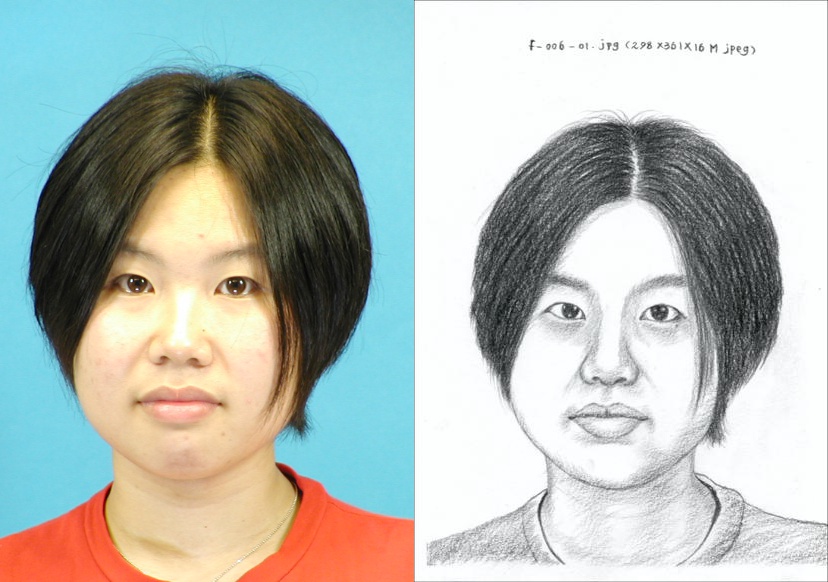 f-006-01.jpg (298x361x16M jpeg)